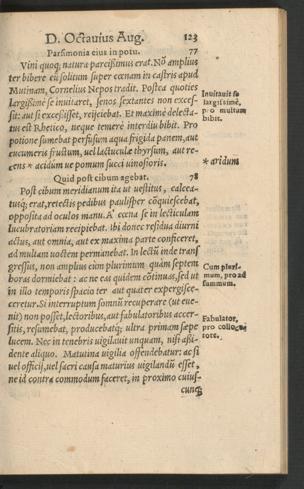 D. Octauius Aug. 123
Parsimonia eius in potu. 77
Vini quoq; natura parcißimus erat. Nõ amplius
ter bibere eũ solitum super cœnam in castris apud
Mutinam, Cornelius Nepos tradit. Postea quoties
largißimè se inuitaret, senos sextantes non exces-
sit: aut si exceßisset, reijciebat. Et maximè delecta-
tus est Rhetico, neque temerè interdiu bibit. Pro
potione sumebat perfusum aqua frigida panem, aut
cucumeris frustum, uel lactuculæ thyrsum, aut re-
cens * acidum ue pomum succi uinosioris.
Inuitauit se
largissimè,
pro multum
bibit.
* aridum
Quid post cibum agebat. 78
Post cibum meridianum ita ut uestitus, calcea-
tusq; erat, retectis pedibus paulisper cõquiescebat,
opposita ad oculos manu. A' cœna se in lecticulam
lucubratoriam recipiebat. Ibi donec residua diurni
actus, aut omnia, aut ex maxima parte conficeret,
ad multam noctem permanebat. In lectũ inde trans
gressus, non amplius cùm plurimum quàm septem
horas dormiebat: ac ne eas quidem cõtinuas, sed ut
in illo temporis spacio ter aut quater expergisce-
ceretur. Si interruptum somnũ recuperare (ut eue-
nit) non posset, lectoribus, aut fabulatoribus accer-
sitis, resumebat, producebatq; ultra primam sæpe
lucem. Nec in tenebris uigilauit unquam, nisi aßi-
dente aliquo. Matutina uigilia offendebatur: ac si
uel officij, uel sacri causa maturius uigilandũ esset,
ne id contra commodum faceret, in proximo cuius-
cunq;
Cum pluri-
mum, pro ad
summum.
Fabulator,
pro collocu
tore.